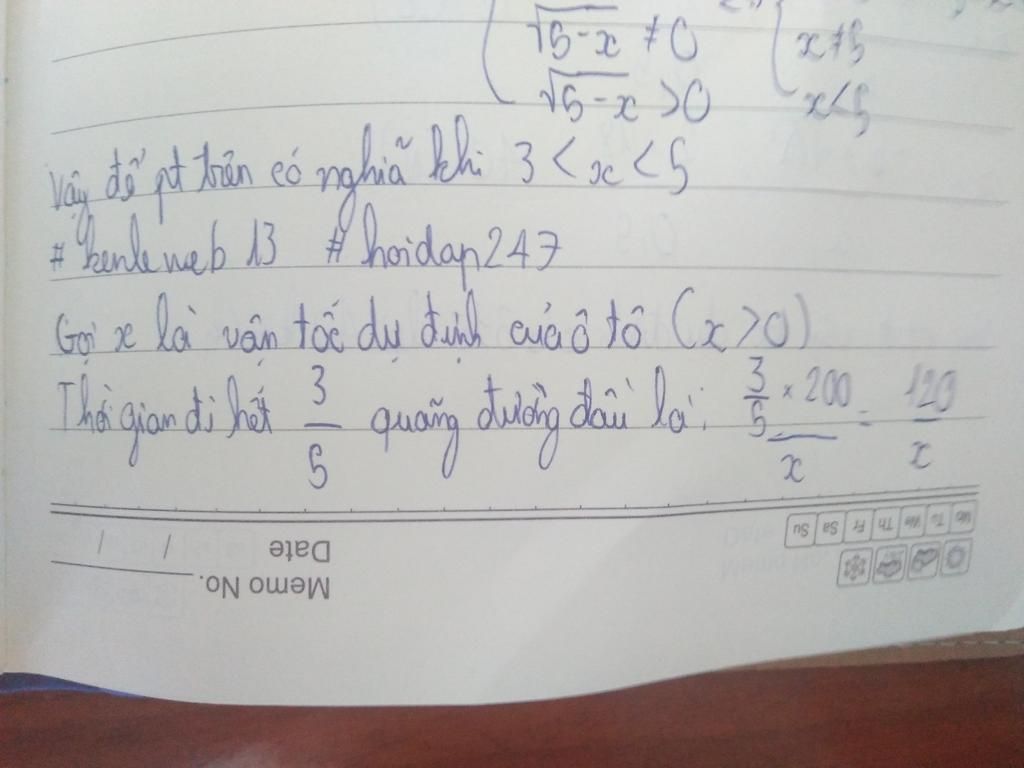 √5-x ≠ 0 x ≠ 5
√5-x > 0 x < 5
Vậy để pt trên có nghĩã khi 3 < x < 5
# kenleweb 13 # hoidap247
Gọi x là vận tốc dự định của ô tô (x > 0)
Thời gian đi hết 3/5 quãng đường đầu là: (3/5 × 200)/x = 120/x
Mo Tu We Th Fr Sa Su
Date / /
Memo No.